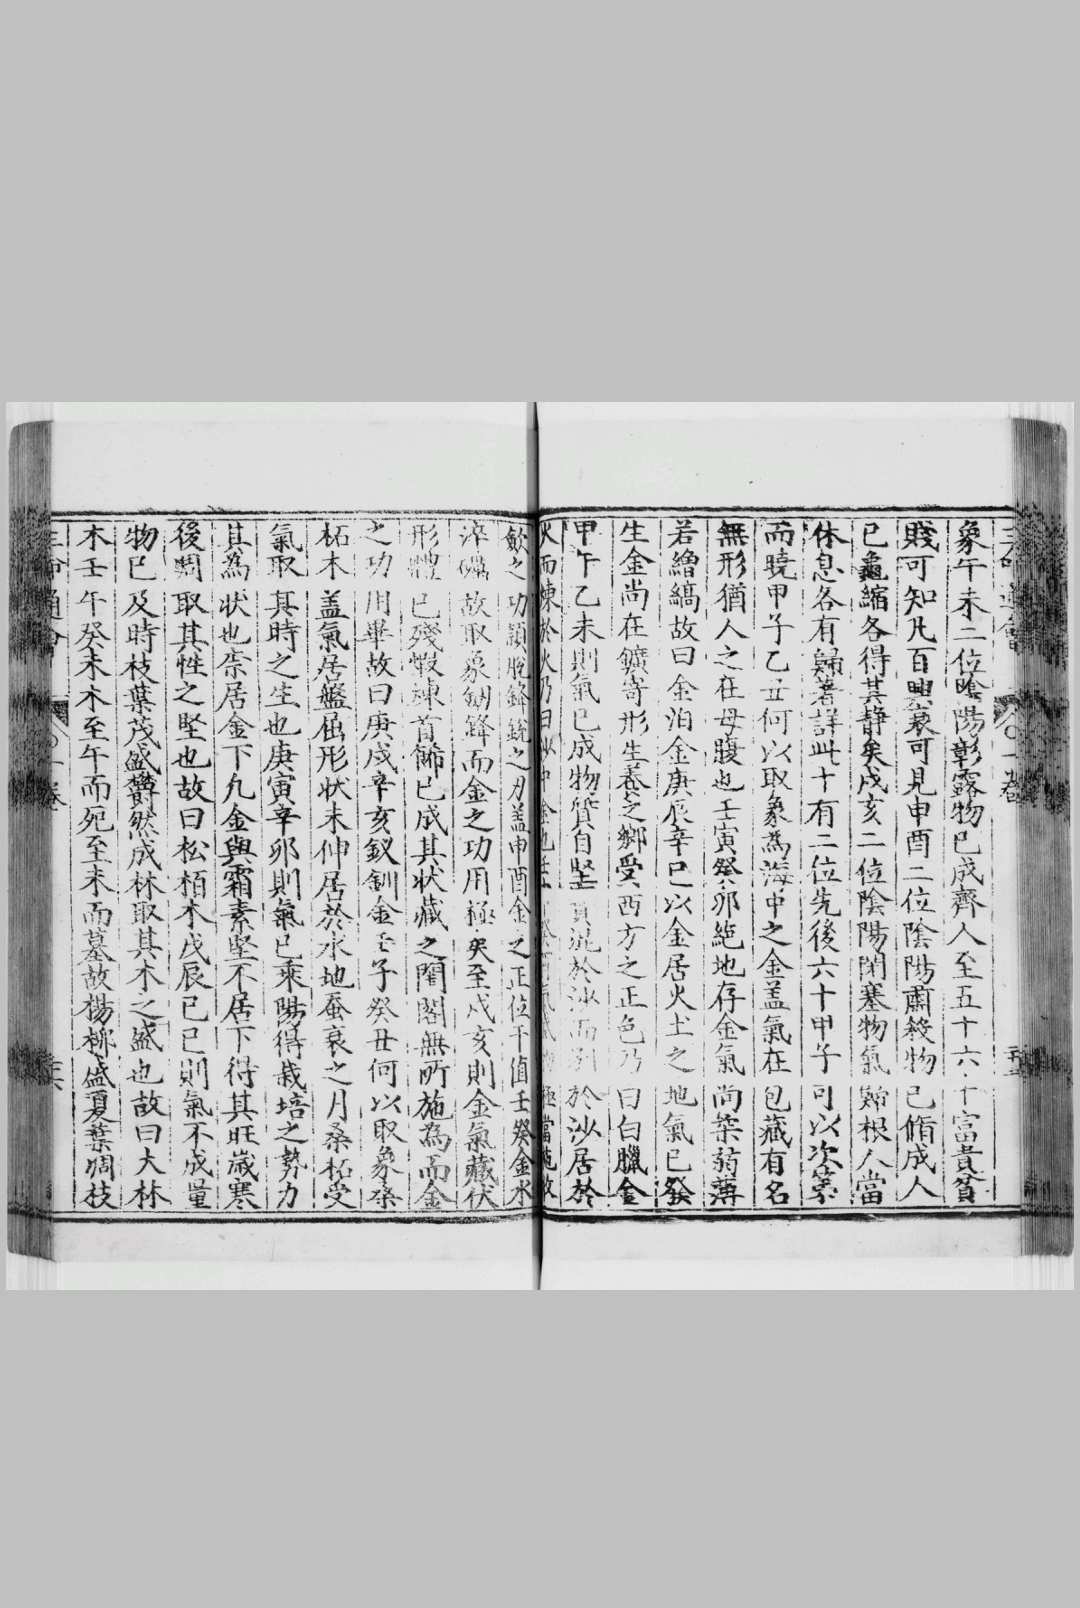 象午未二位陰陽彰露物已成齊人至五十六十富貴貧
賤可知凡百興衰可見申酉二位陰陽肅殺物已脩成人
已龜縮各得其静矣戌亥二位陰陽閉塞物氣歸根人當
休息各有歸著詳此十有二位先後六十甲子可以次第
而曉甲子乙丑何以取象為海中之金盖氣在包藏有名
無形猶人之在母腹也壬寅癸卯絶地存金氣尚柔弱薄
若繒縞故曰金泊金庚辰辛巳以金居火土之地氣已發
生金尚在鑛寄形生養之鄉受西方之正色乃曰白臘金
甲午乙未則氣已成物質自堅混於沙而別於沙居於
火而煉於火乃曰沙中金也
歛之功頴脫鋒銳之刃盖申酉金之正位干值壬癸金水
淬礪故取象劒鋒而金之功用極矣至戌亥則金氣藏伏
形體已殘煆煉首飾已成其狀藏之閨閣無所施為而金
之功用畢故曰庚戌辛亥釵釧金壬子癸丑何以取象桑
柘木盖氣居盤屈形状未伸居於水地蚕衰之月桑柘受
氣取其時之生也庚寅辛卯則氣已乘陽得栽培之勢力
其為状也柰居金下凢金與霜素堅不居下得其旺歲寒
後凋取其性之堅也故曰松栢木戊辰己巳則氣不成量
物已及時枝葉茂盛欝然成林取其木之盛也故曰大林
木壬午癸未木至午而死至未而墓故楊栁盛夏葉凋枝